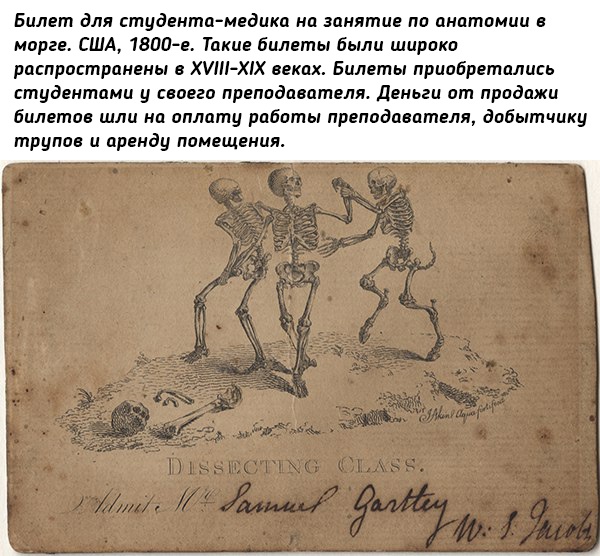 Билет для студента-медика на занятие по анатомии в
морге. США, 1800-е. Такие билеты были широко
распространены в XVIII-XIX веках. Билеты приобретались
студентами у своего преподавателя. Деньги от продажи
билетов шли на оплату работы преподавателя, добытчику
трупов и аренду помещения.
DISSECTING CLASS.
Admit Mr Samuel Gartley
W. S. Jacobs